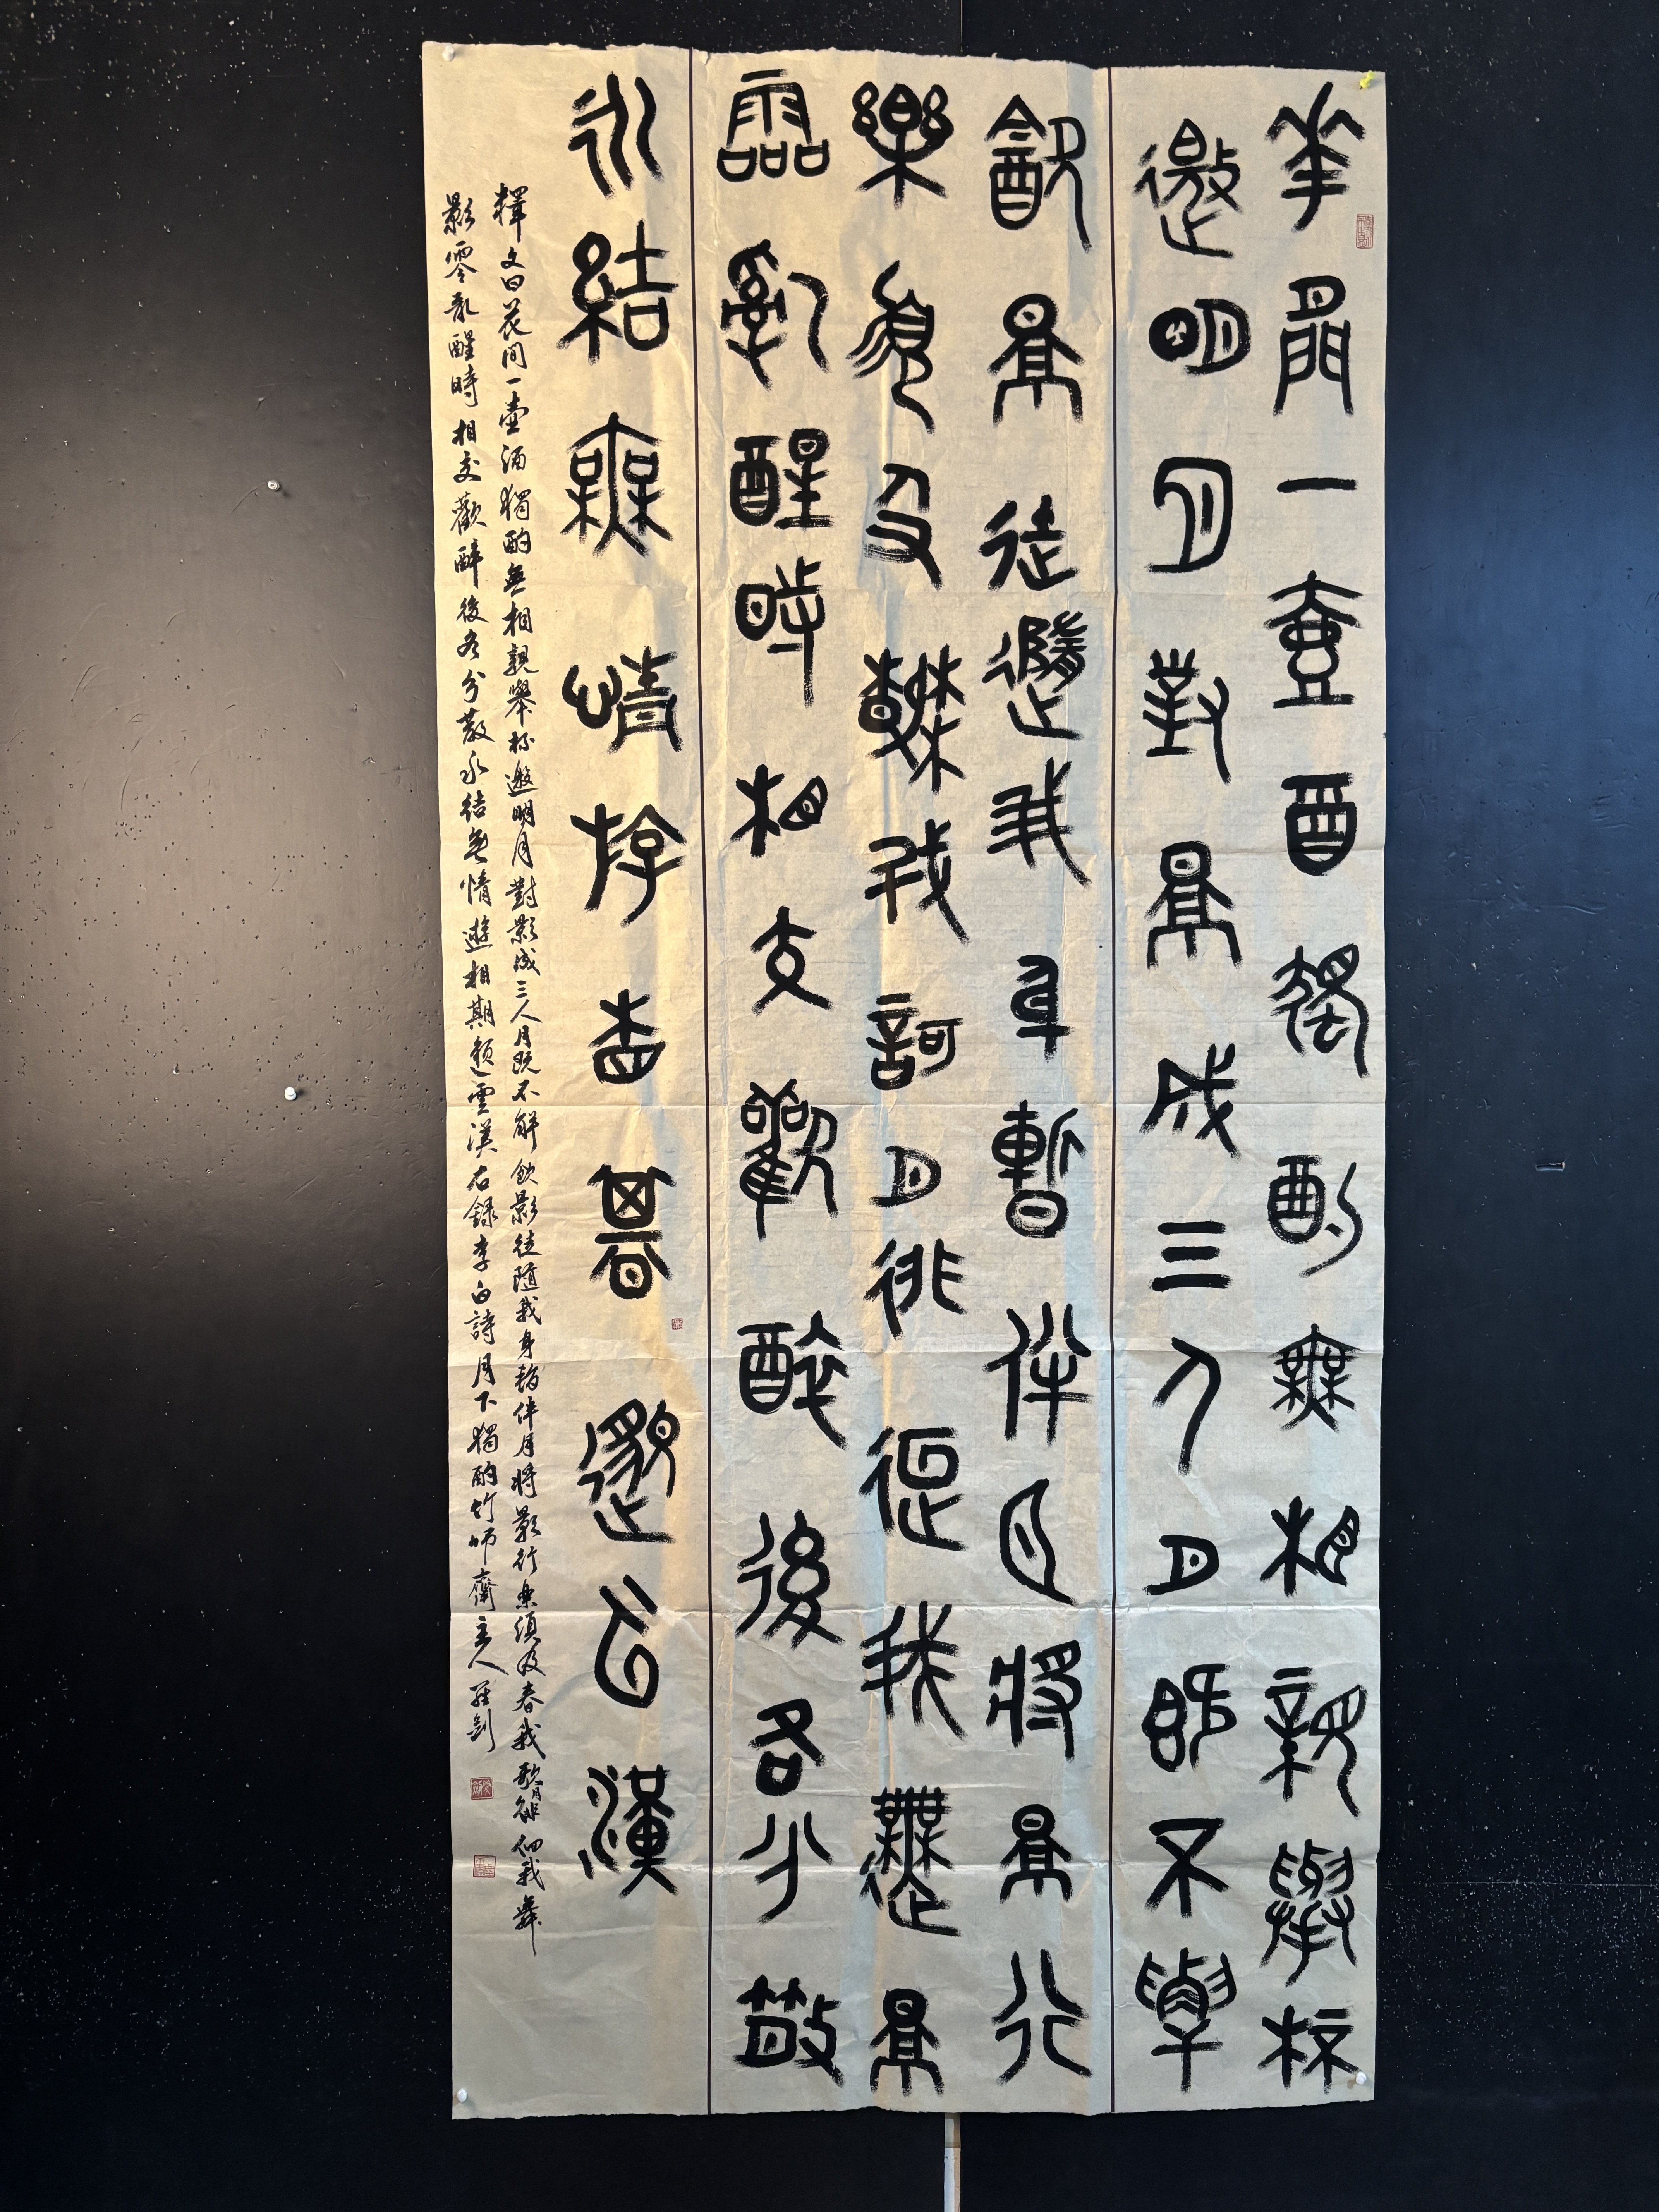 華間一壺酉獨酌無相親舉杯
邀明月對景成三人月既不解
飲景徒隨我身暫伴月將景行
樂須及春我歌月徘徊我舞景
零亂醒時相交歡醉後各分散
永結無情游相期邈云漢
釋文曰花間一壺酒獨酌無相親舉杯邀明月對影成三人月既不解飲影徒隨我身暫伴月將影行樂須及春我歌月徘徊我舞
影零亂醒時相交歡醉後各分散永結無情遊相期邈雲漢右錄李白詩月下獨酌竹師齋主人